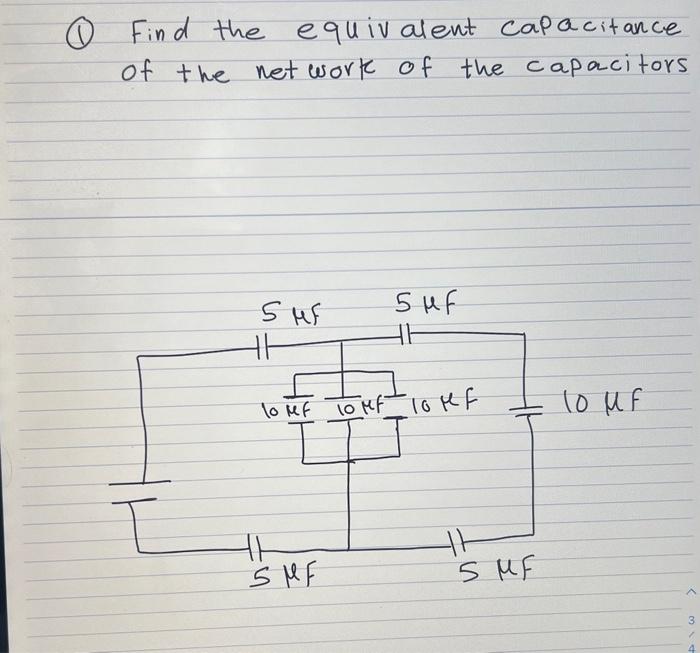 ① Find the equivalent capacitance
of the network of the capacitors
5 μF 5 μF
10 μF 10 μF 10 μF 10 μF
5 μF 5 μF
3
4